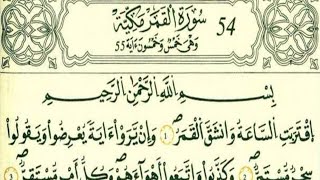 54 سُورَةُ الْقَمَرِ مَكِّيَّة
وَهْىَ خَمْسٌ وَخَمْسُونَ ءَايَة 55
بِسْمِ اللَّهِ الرَّحْمَٰنِ الرَّحِيمِ
اِقْتَرَبَتِ السَّاعَةُ وَانشَقَّ الْقَمَرُ ۝١ وَإِنْ يَّرَوْا ءَايَةً يُعْرِضُوا وَيَقُولُوا
سِحْرٌ مُّسْتَمِرٌّ ۝٢ وَكَذَّبُوا وَاتَّبَعُوا أَهْوَآءَهُمْ وَكُلُّ أَمْرٍ مُّسْتَقِرٌّ ۝٣